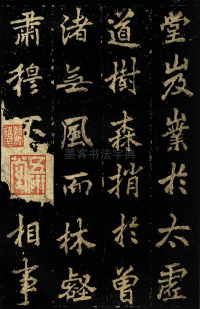 堂岌嶪於太虛
道樹森梢於曾
渚无風而林壑
肅穆不
相事
墨客书法字典